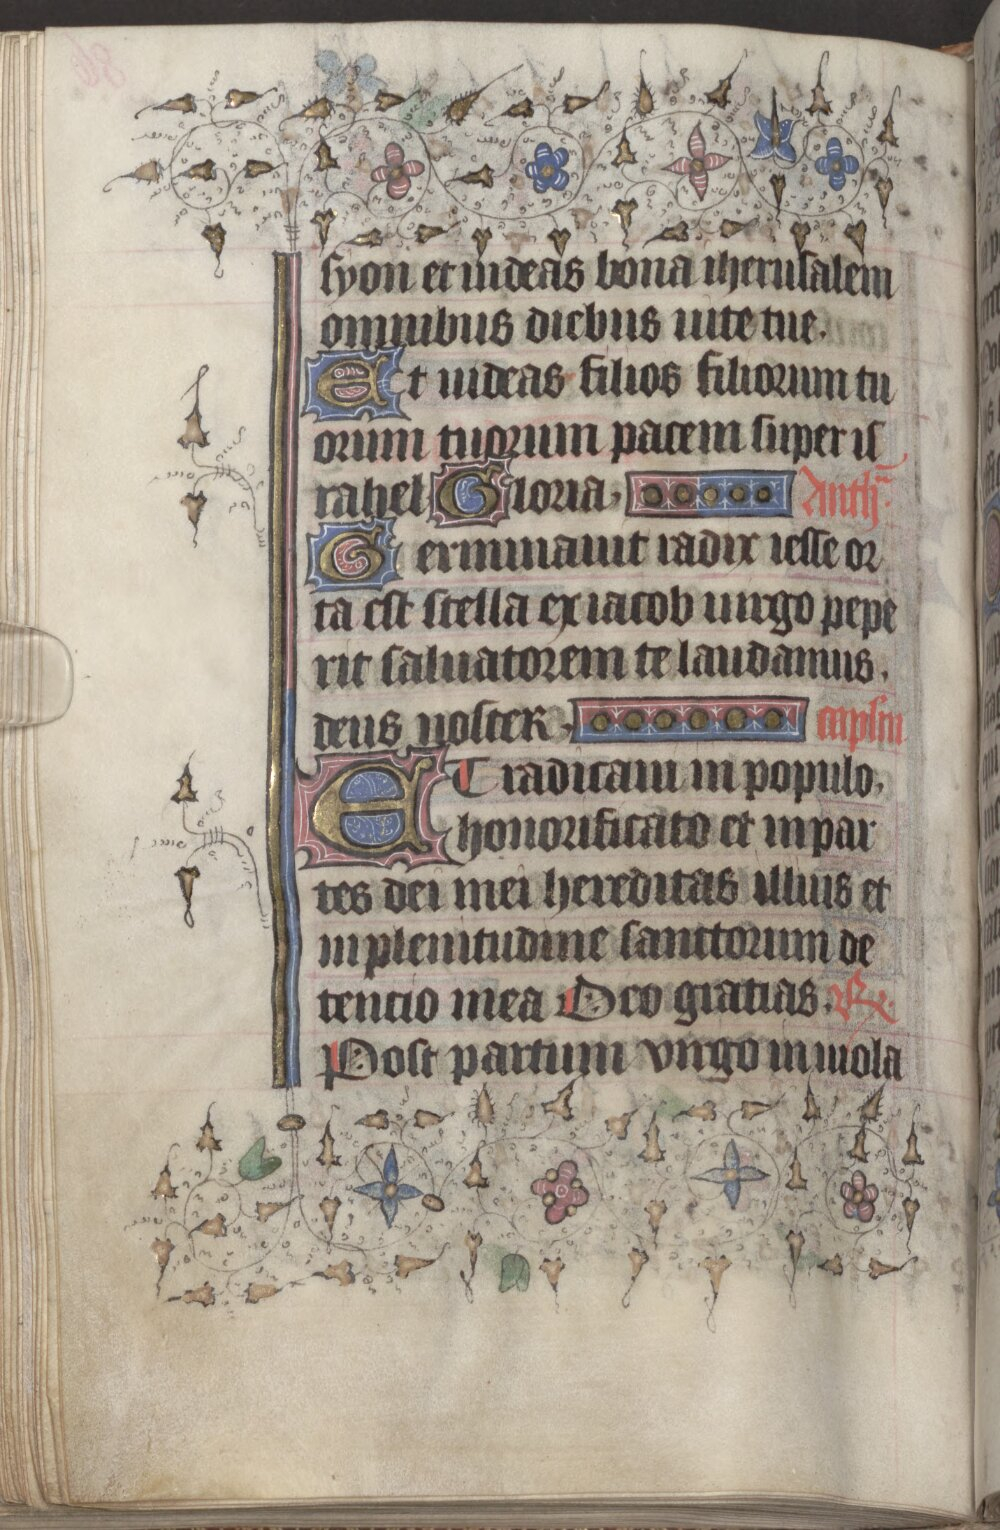 syon et uideas bona iherusalem
omnibus diebus uite tue.
Et uideas filios filiorum tu
orum tuorum pacem super is
rahel Gloria. Anth.
Germinauit radix iesse or
ta est stella ex iacob uirgo pepe
rit saluatorem te laudamus.
deus noster. capitu
ET radicaui in populo.
honorificato et in par
tes dei mei hereditas illius et
in plenitudine sanctorum de
tencio mea Deo gratias. R.
Post partum virgo inuiola